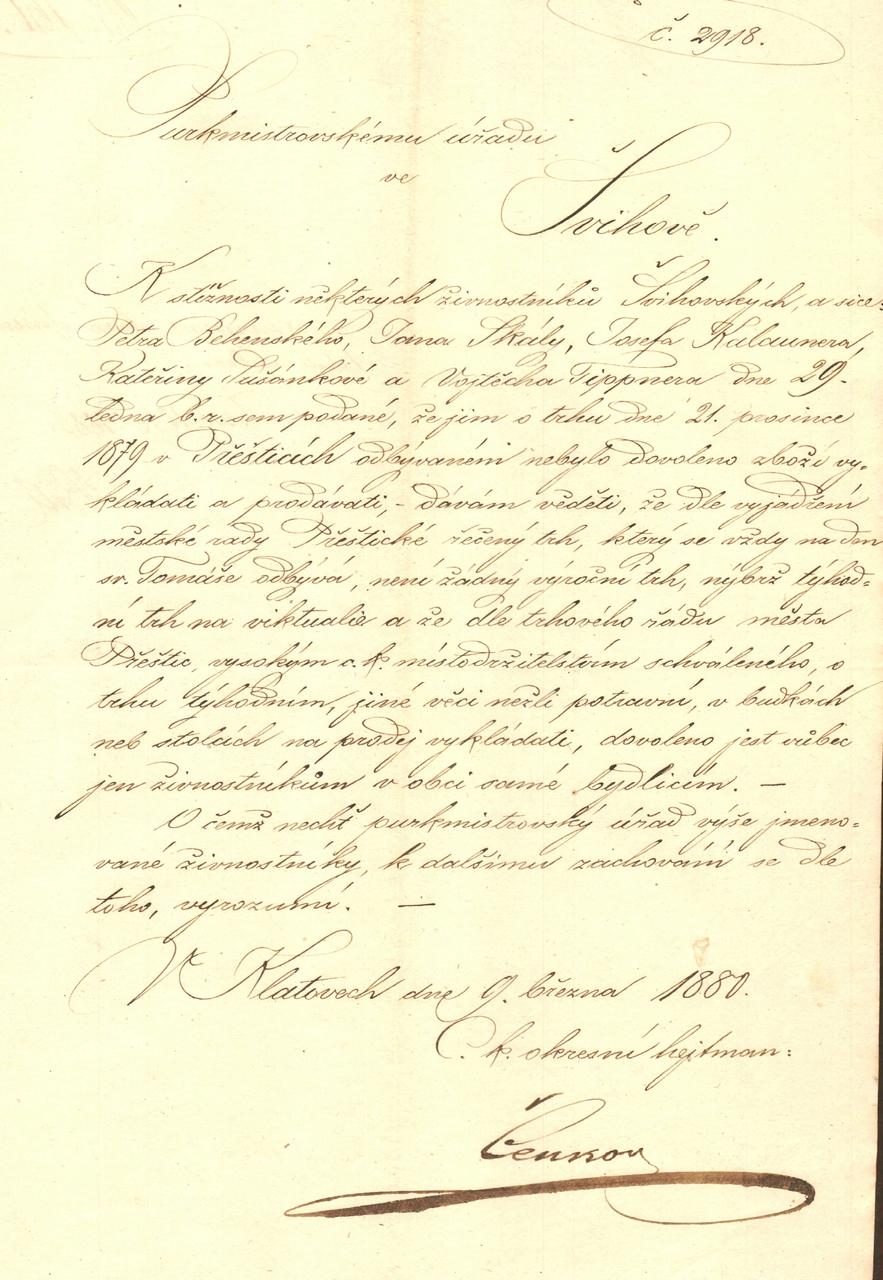 č. 2918.
Purkmistrovskému úřadu
ve
Švihově.
K stížnosti některých živnostníků Švihovských, a sice:
Petra Behenského, Jana Skály, Josefa Kalaunera,
Kateřiny Sušánkové a Vojtěcha Tippnera dne 29.
ledna b. r. sem podané, že jim o trhu dne 21. prosince
1879 v Přešticích odbývaném nebylo dovoleno zboží vy-
kládati a prodávati, - dávám věděti, že dle vyjádření
městské rady Přeštické řečený trh, který se vždy na den
sv. Tomáše odbývá, není žádný výroční trh, nýbrž týhod-
ní trh na viktualie a že dle trhového řádu města
Přeštic, vysokým c. k. místodržitelstvím schváleného, o
trhu týhodním, jiné věci nežli potravní, v budkách
neb stolcích na prodej vykládati, dovoleno jest vůbec
jen živnostníkům v obci samé bydlícím. —
O čemž nechť purkmistrovský úřad výše jmeno-
vané živnostníky, k dalšímu zachování se dle
toho, vyrozumí. —
V Klatovech dne 9. března 1880.
C. k. okresní hejtman: